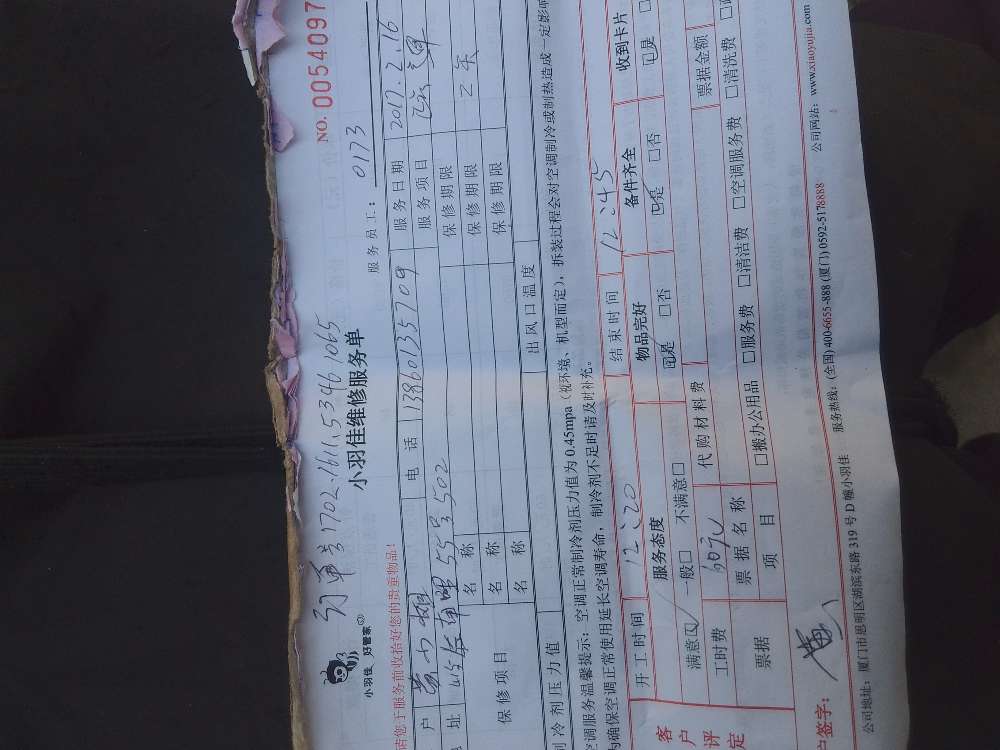 NO. 0054097
订单号1702.1611.5346.1065
小羽佳 好管家
小羽佳维修服务单
服务员工: 0173
请您于服务前收拾好您的贵重物品!
户 电话 13860135709 服务日期 2017.2.16
址 55号502 服务项目
保修项目
名称 保修期限
名称 保修期限
名称 保修期限
制冷剂压力值 出风口温度
空调服务温馨提示:空调正常制冷剂压力值为0.45mpa(视环境、机型而定),拆装过程会对空调制冷或制热造成一定影响
为确保空调正常使用延长空调寿命,制冷剂不足时请及时补充。
开工时间 12:20 结束时间 12:45
客户评定
服务态度 物品完好 备件齐全 收到卡片
满意☑ 一般□ 不满意□ ☑是 □否 ☑是 □否 ☑是
工时费 60元 代购材料费 票据金额
票据 票据名称 项目 □搬办公用品 □服务费 □清洁费 □空调服务费 □清洗费
户签字:
公司地址:厦门市思明区湖滨东路319号D幢小羽佳 服务热线:(全国)400-6655-888 (厦门)0592-5178888 公司网站:www.xiaoyujia.com